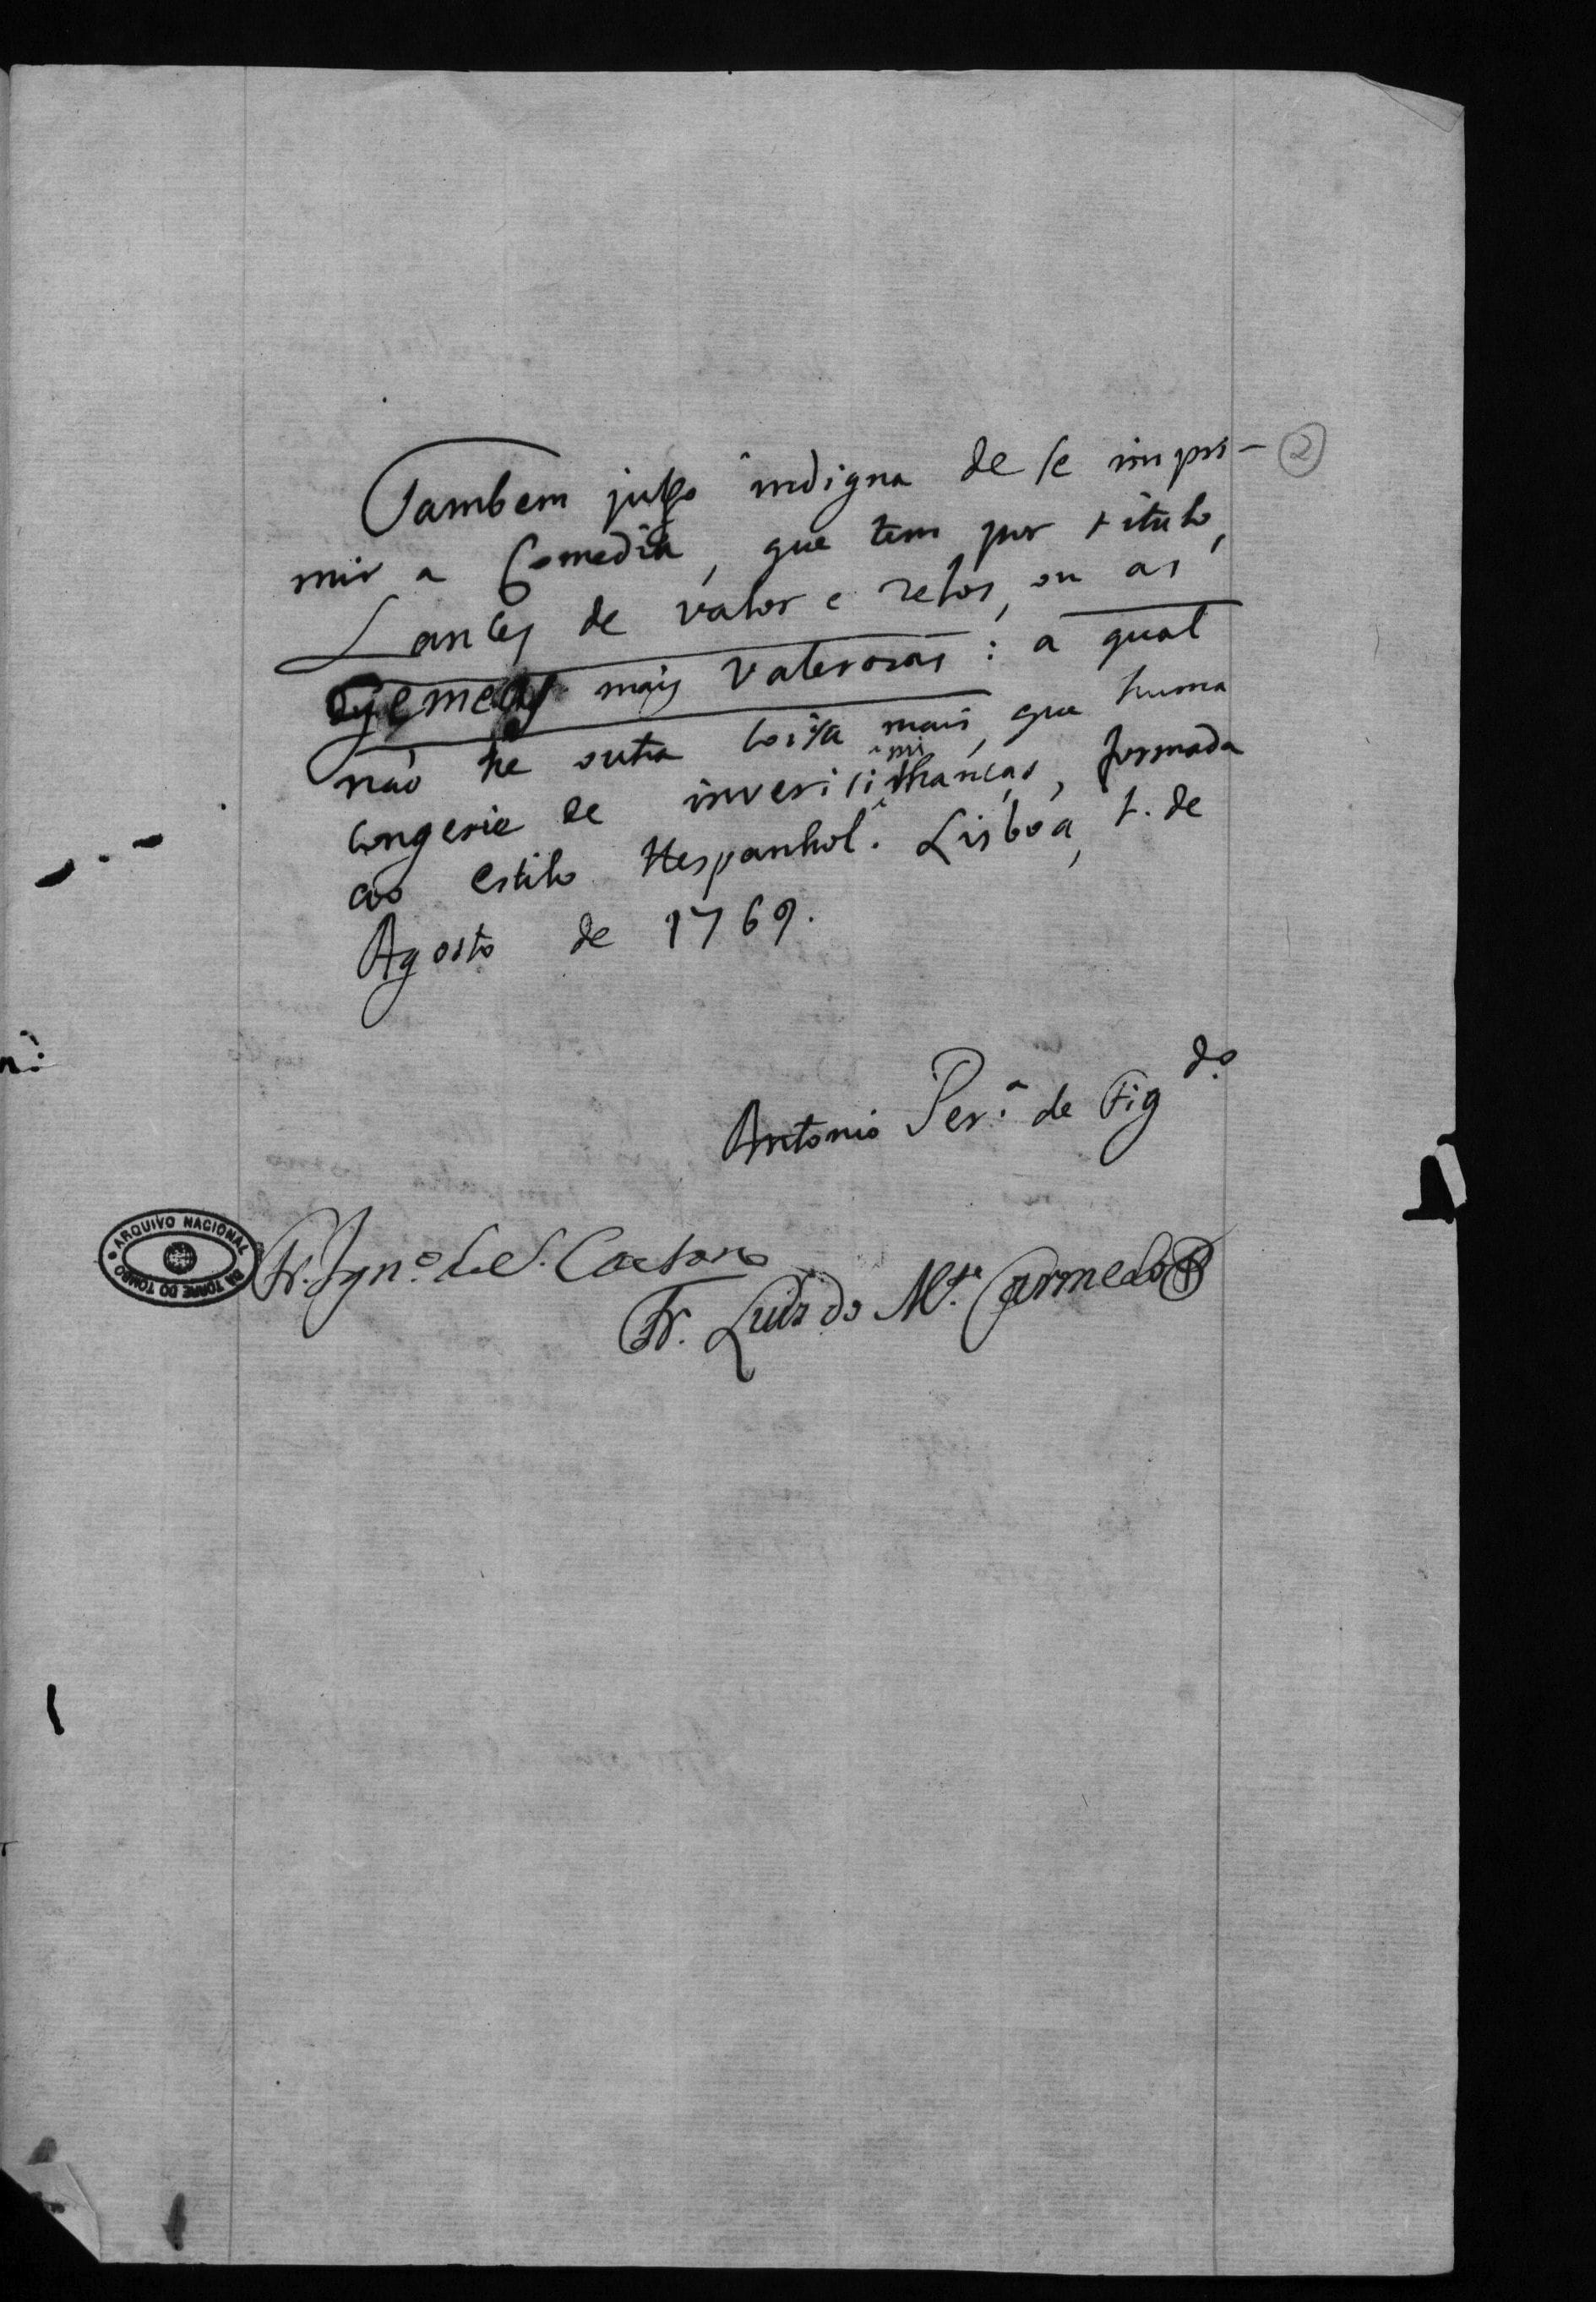 Tambem julgo indigna de se impri-
2
mir a Comedia, que tem por titulo,
Lances de valor e zelos, ou as
Gemeas mais valerosas: a qual
não he outra coisa mais, que huma
congerie de inverisimilhanças, formada
ao estilo Hespanhol. Lisboa, 1. de
Agosto de 1769.
Antonio Per.ª de Fig.do
Fr. Ign.º de S. Caetano
Fr. Luis do M.te Carmelo
ARQUIVO NACIONAL DA TORRE DO TOMBO